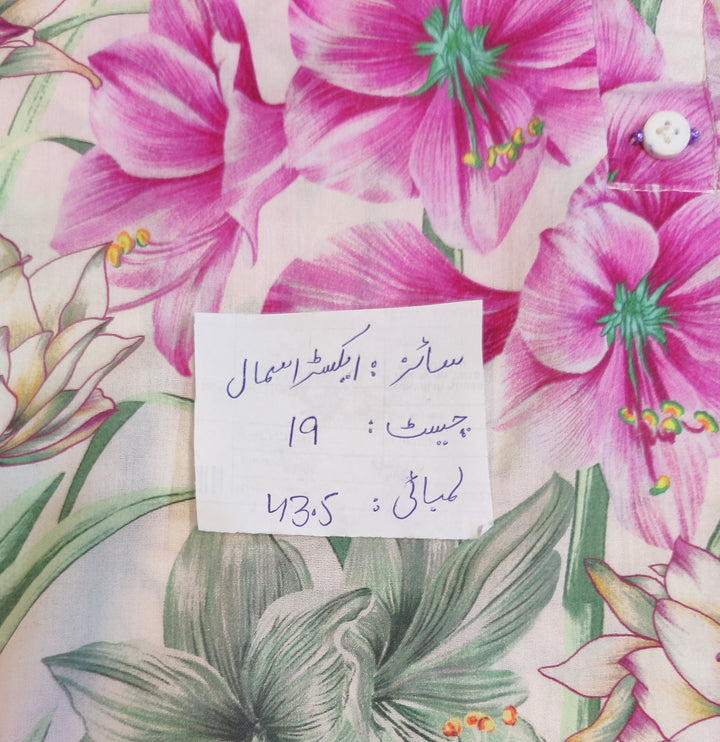 سائز : ایکسٹرا سمال
چیسٹ : 19
لمبائی : 43.5